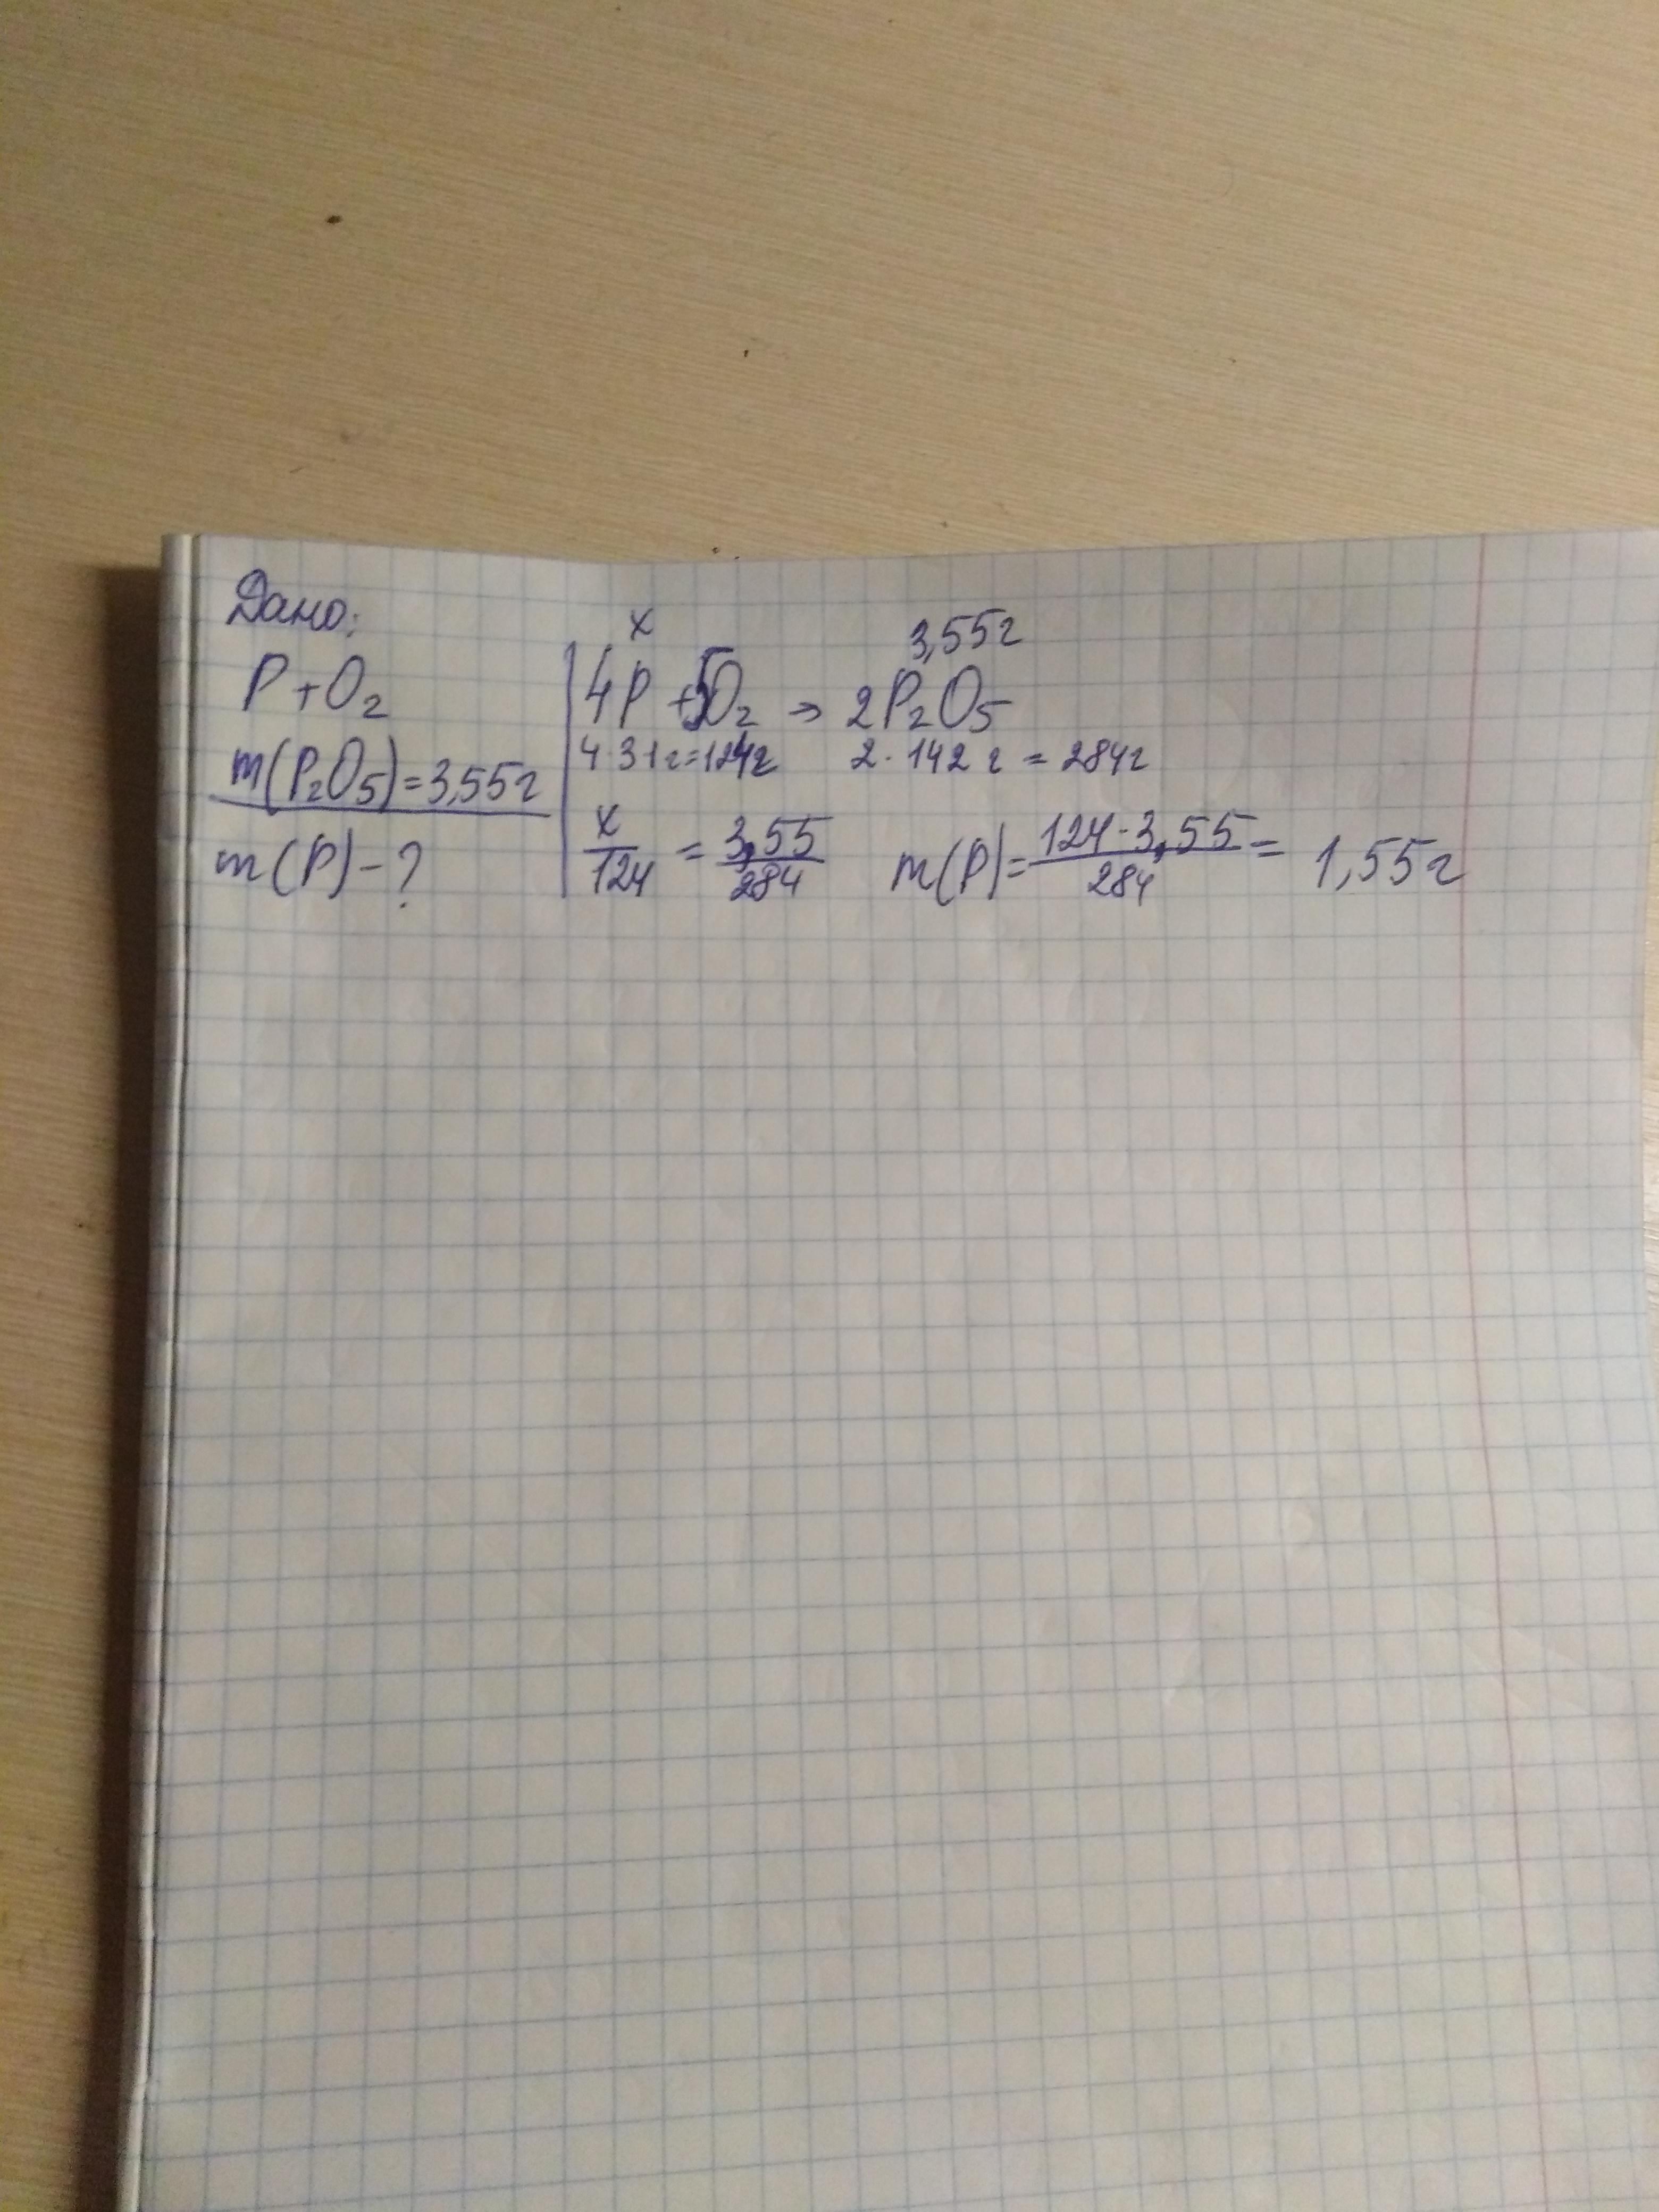 Дано:
P + O₂
m(P₂O₅)=3,55г
m(P)-?
x 3,55г
4P +5O₂ → 2P₂O₅
4·31г=124г 2·142г = 284г
x/124 = 3,55/284 m(P)= 124·3,55/284 = 1,55г